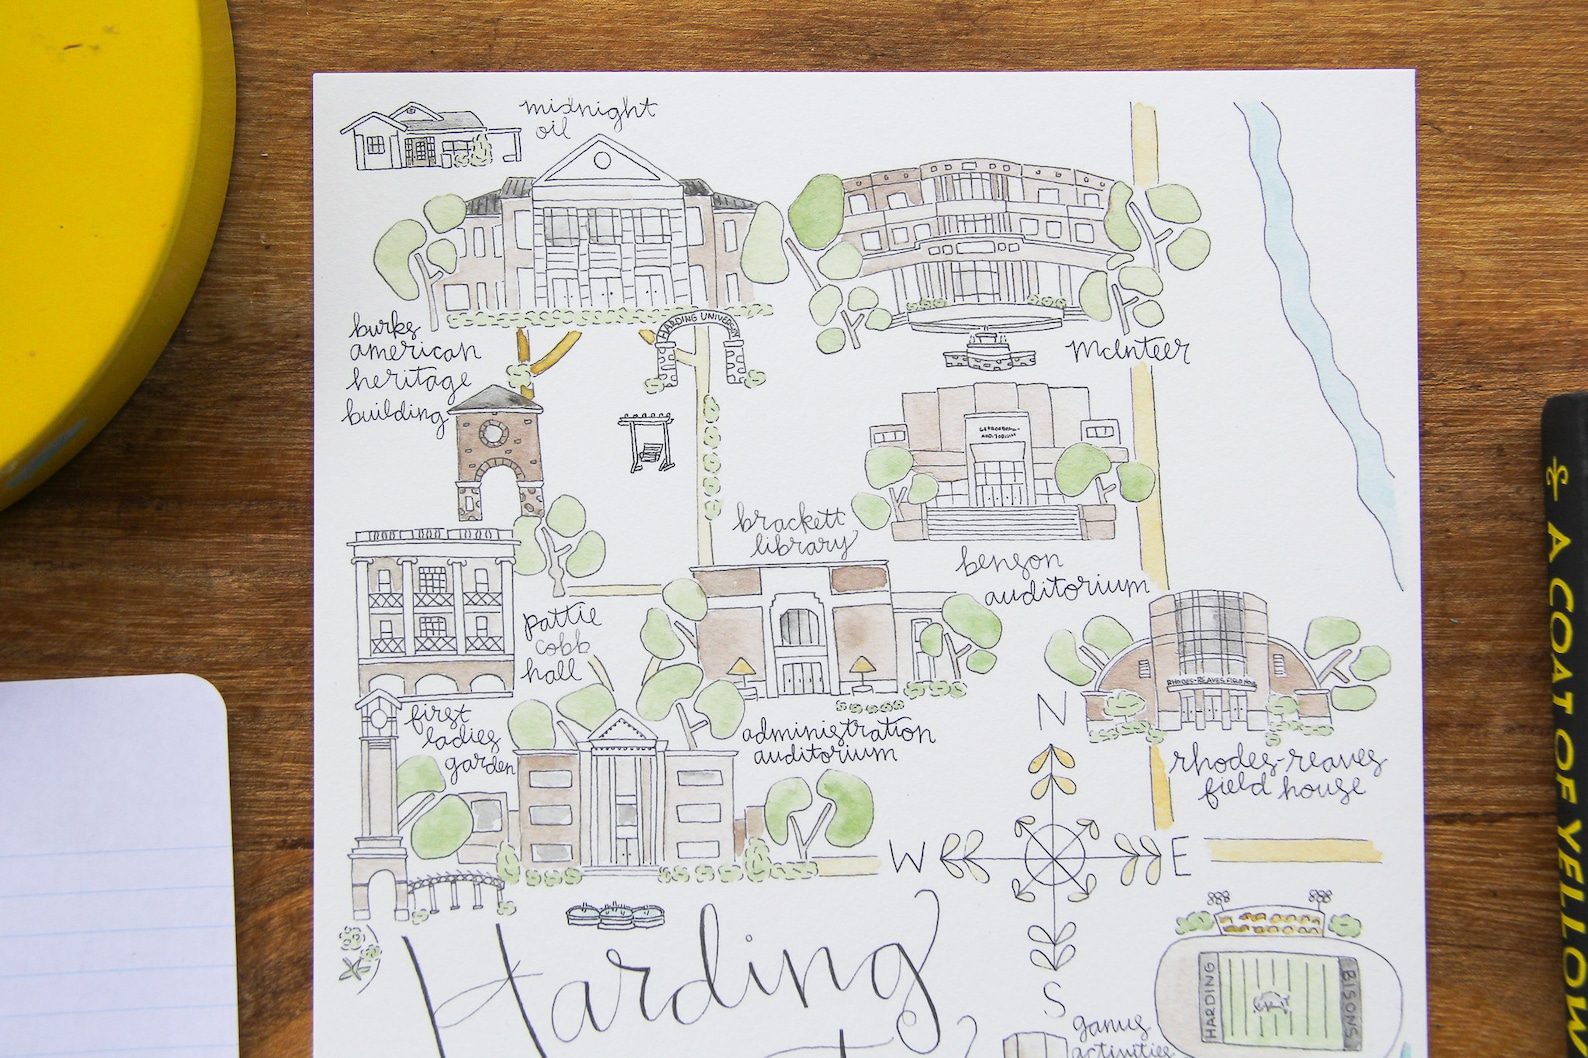 midnight
oil
burks
american
heritage
building
HARDING UNIVERSITY
McInteer
AUDITORIUM
brackett
library
benson
auditorium
pattie
cobb
hall
first
ladies
garden
administration
auditorium
RHODES-REAVES FIELD HOUSE
rhodes-reaves
field house
N
W
E
S
Harding
HARDING
BISONS
ganus
activities
A COAT OF YELLOW